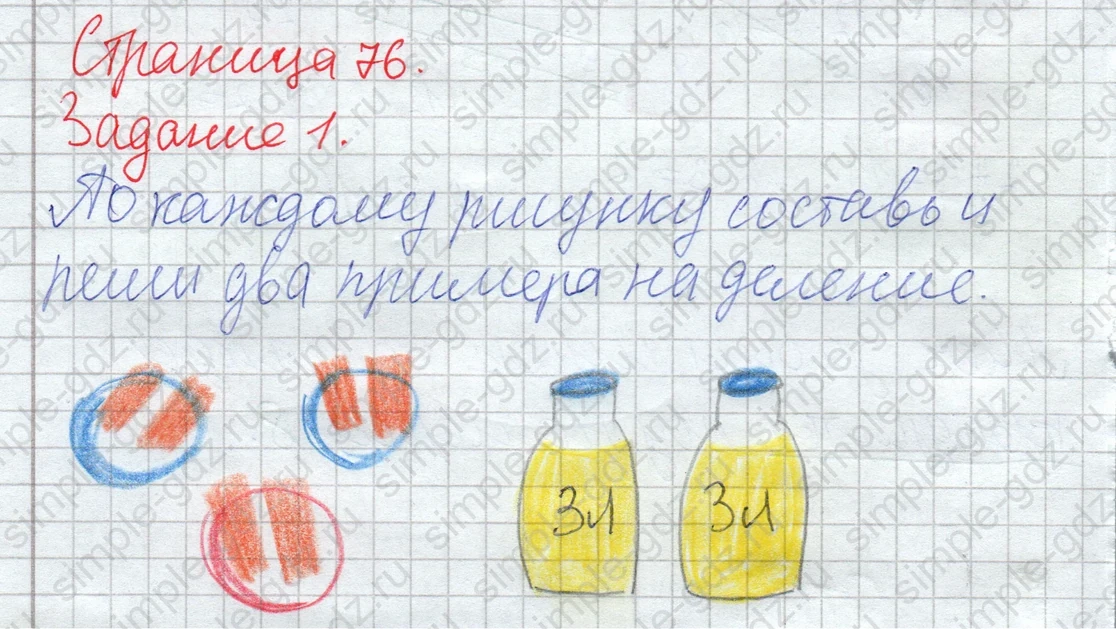 Страница 76.
Задание 1.
По каждому рисунку составь и
реши два примера на деление.
3л 3л
simple-gdz.ru